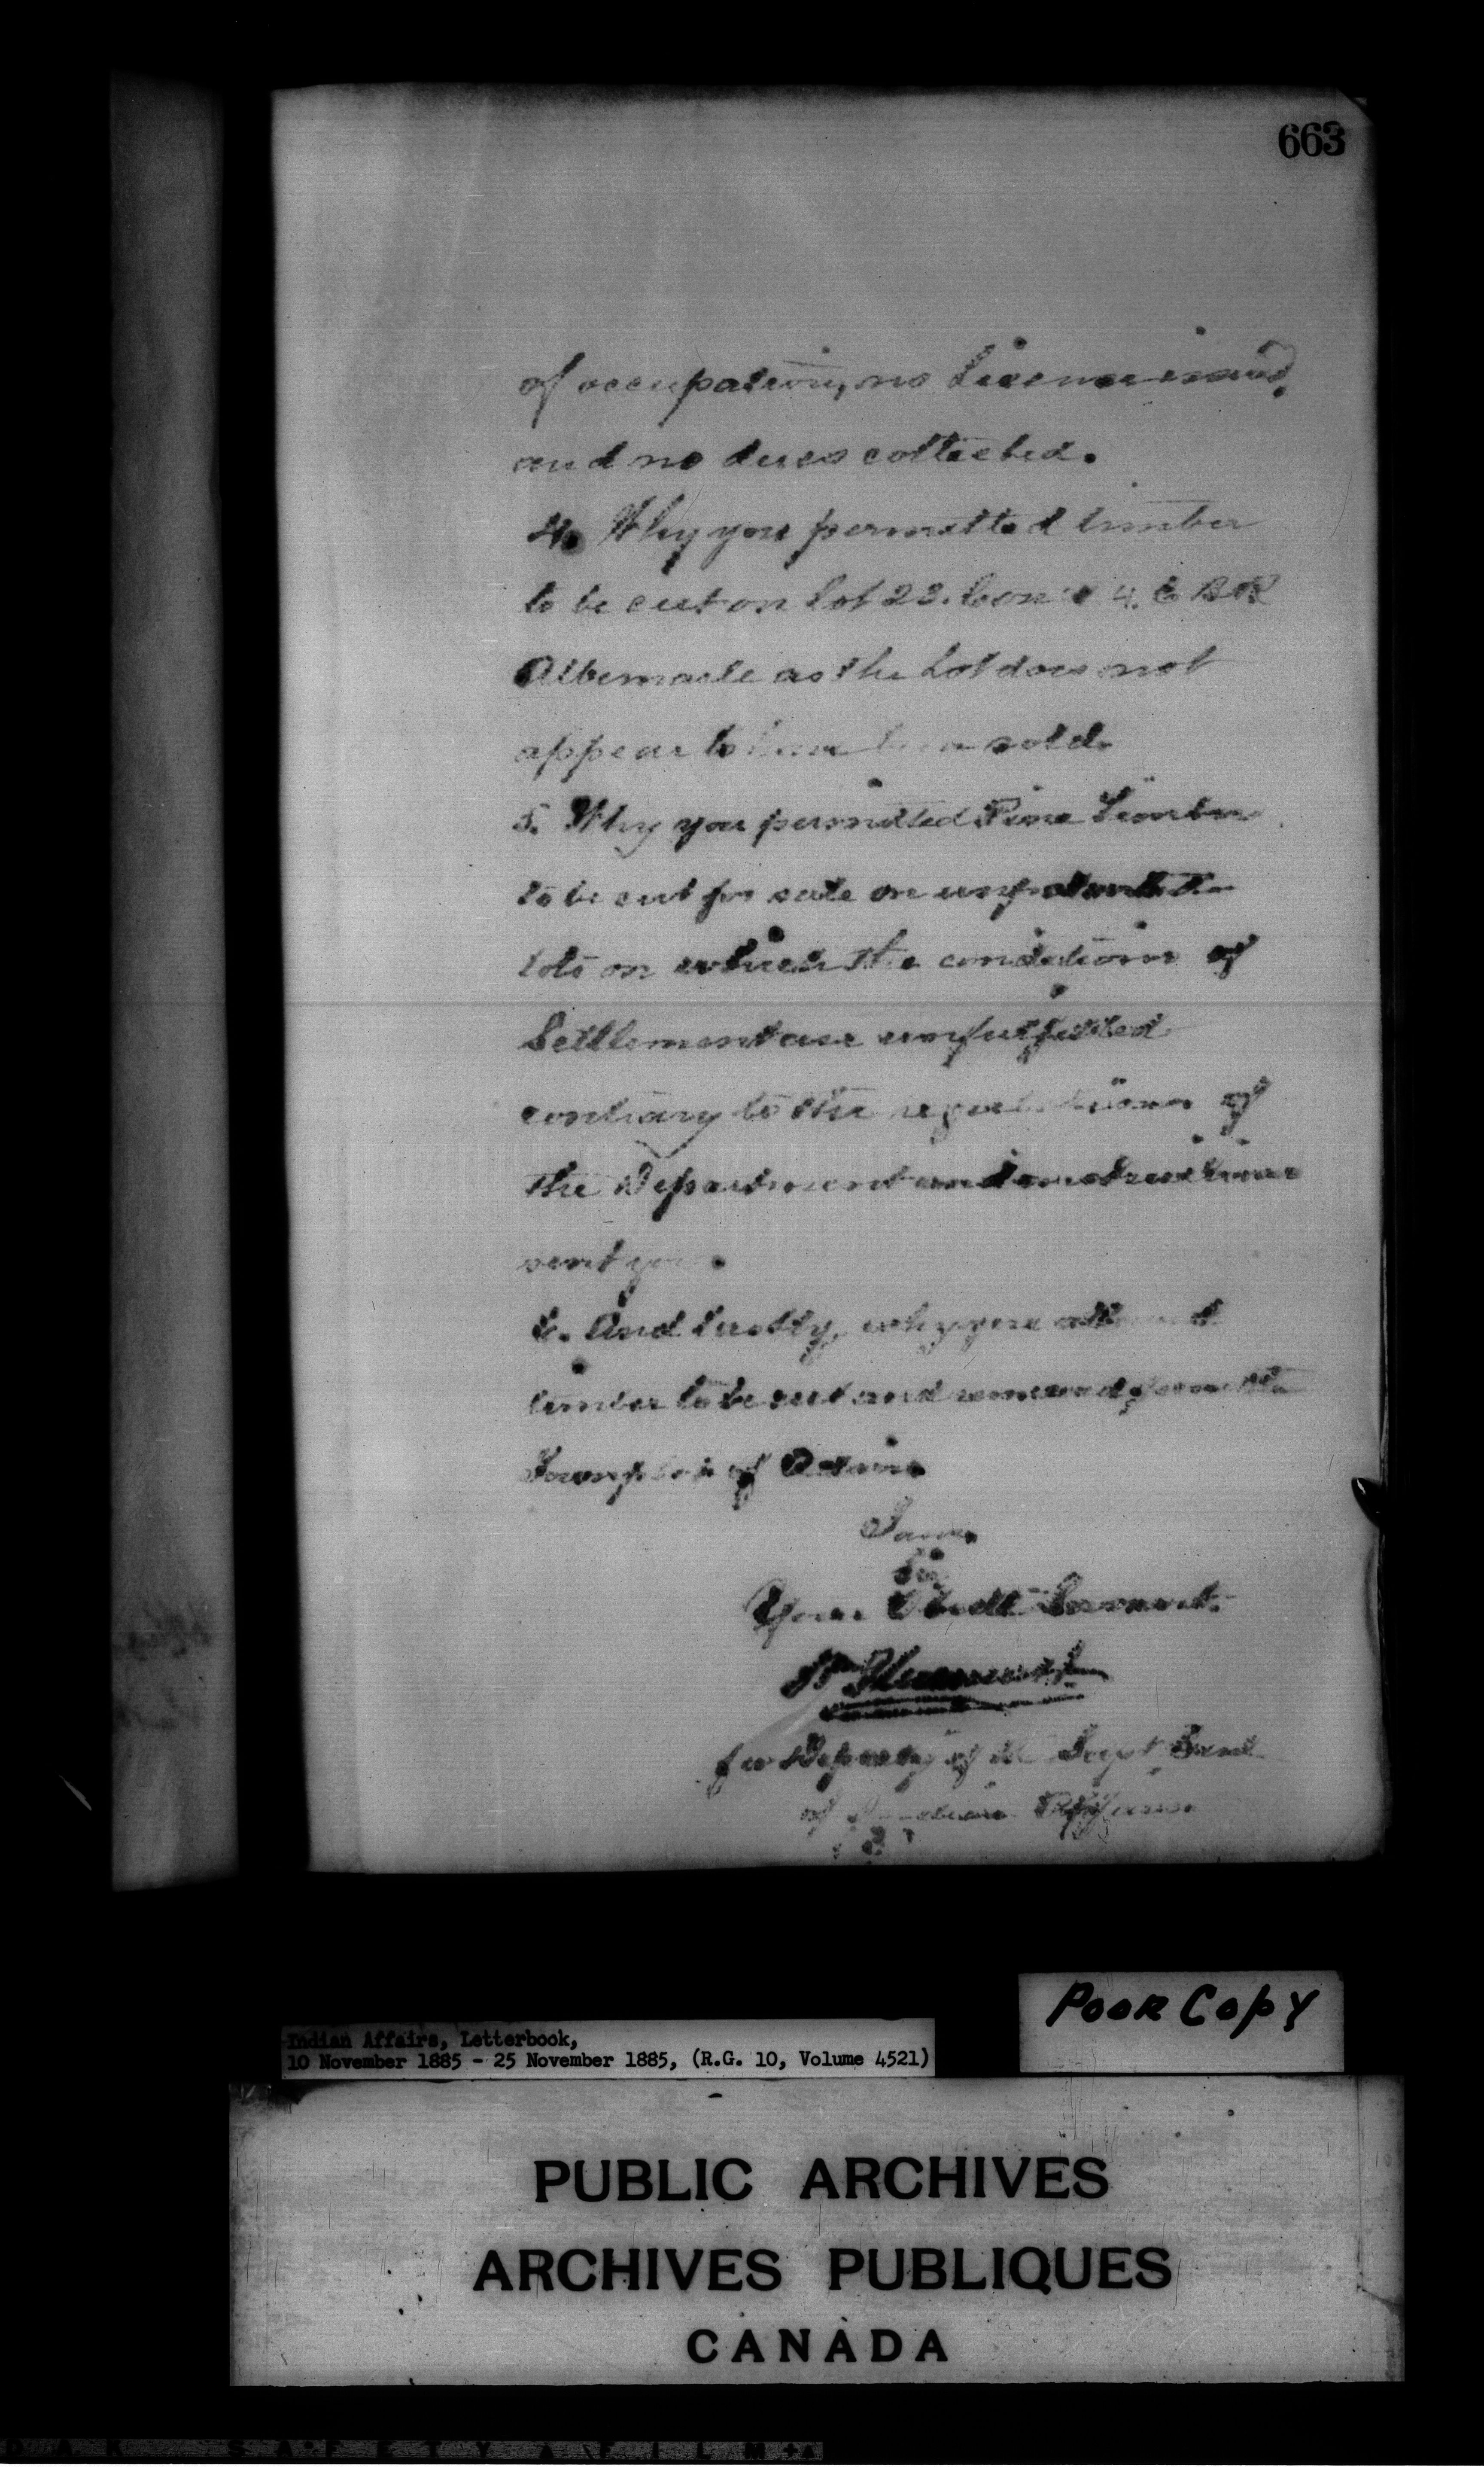 663
of occupation, no License issued,
and no dues collected.
4. Why you permitted timber
to be cut on Lot 22. Con: 4. E BR
Albemarle as the Lot does not
appear to have been sold.
5. Why you permitted Pine Timber
to be cut for sale on unpatented
lots on which the conditions of
Settlement are unfulfilled
contrary to the regulations of
the Department and instructions
sent you.
6. And lastly, why you allowed
timber to be cut and removed from the
Township of
I am,
Sir
Your Obedt Servant.
for Deputy of the Supt Genl
of Indian Affairs.
Poor Copy
Indian Affairs, Letterbook,
10 November 1885 - 25 November 1885, (R.G. 10, Volume 4521)
PUBLIC ARCHIVES
ARCHIVES PUBLIQUES
CANADA